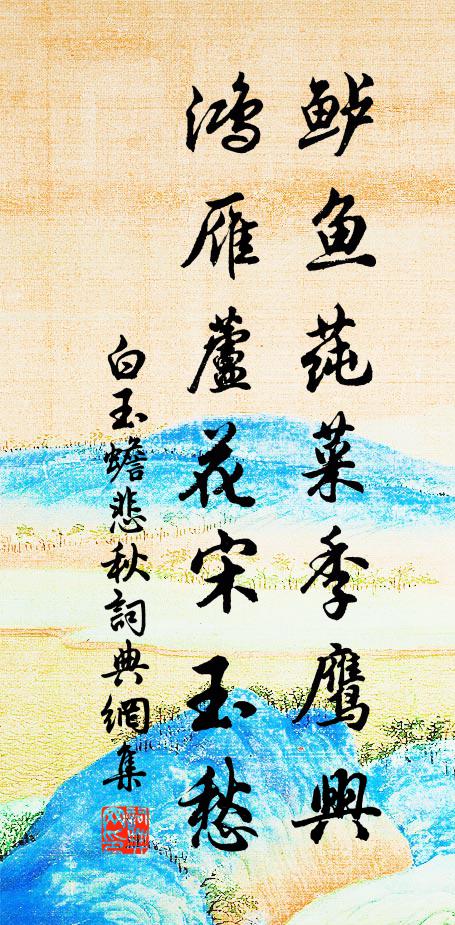 鲈鱼莼菜季鹰興
鴻雁蘆花宋玉愁
白玉蟾悲秋詞典網集